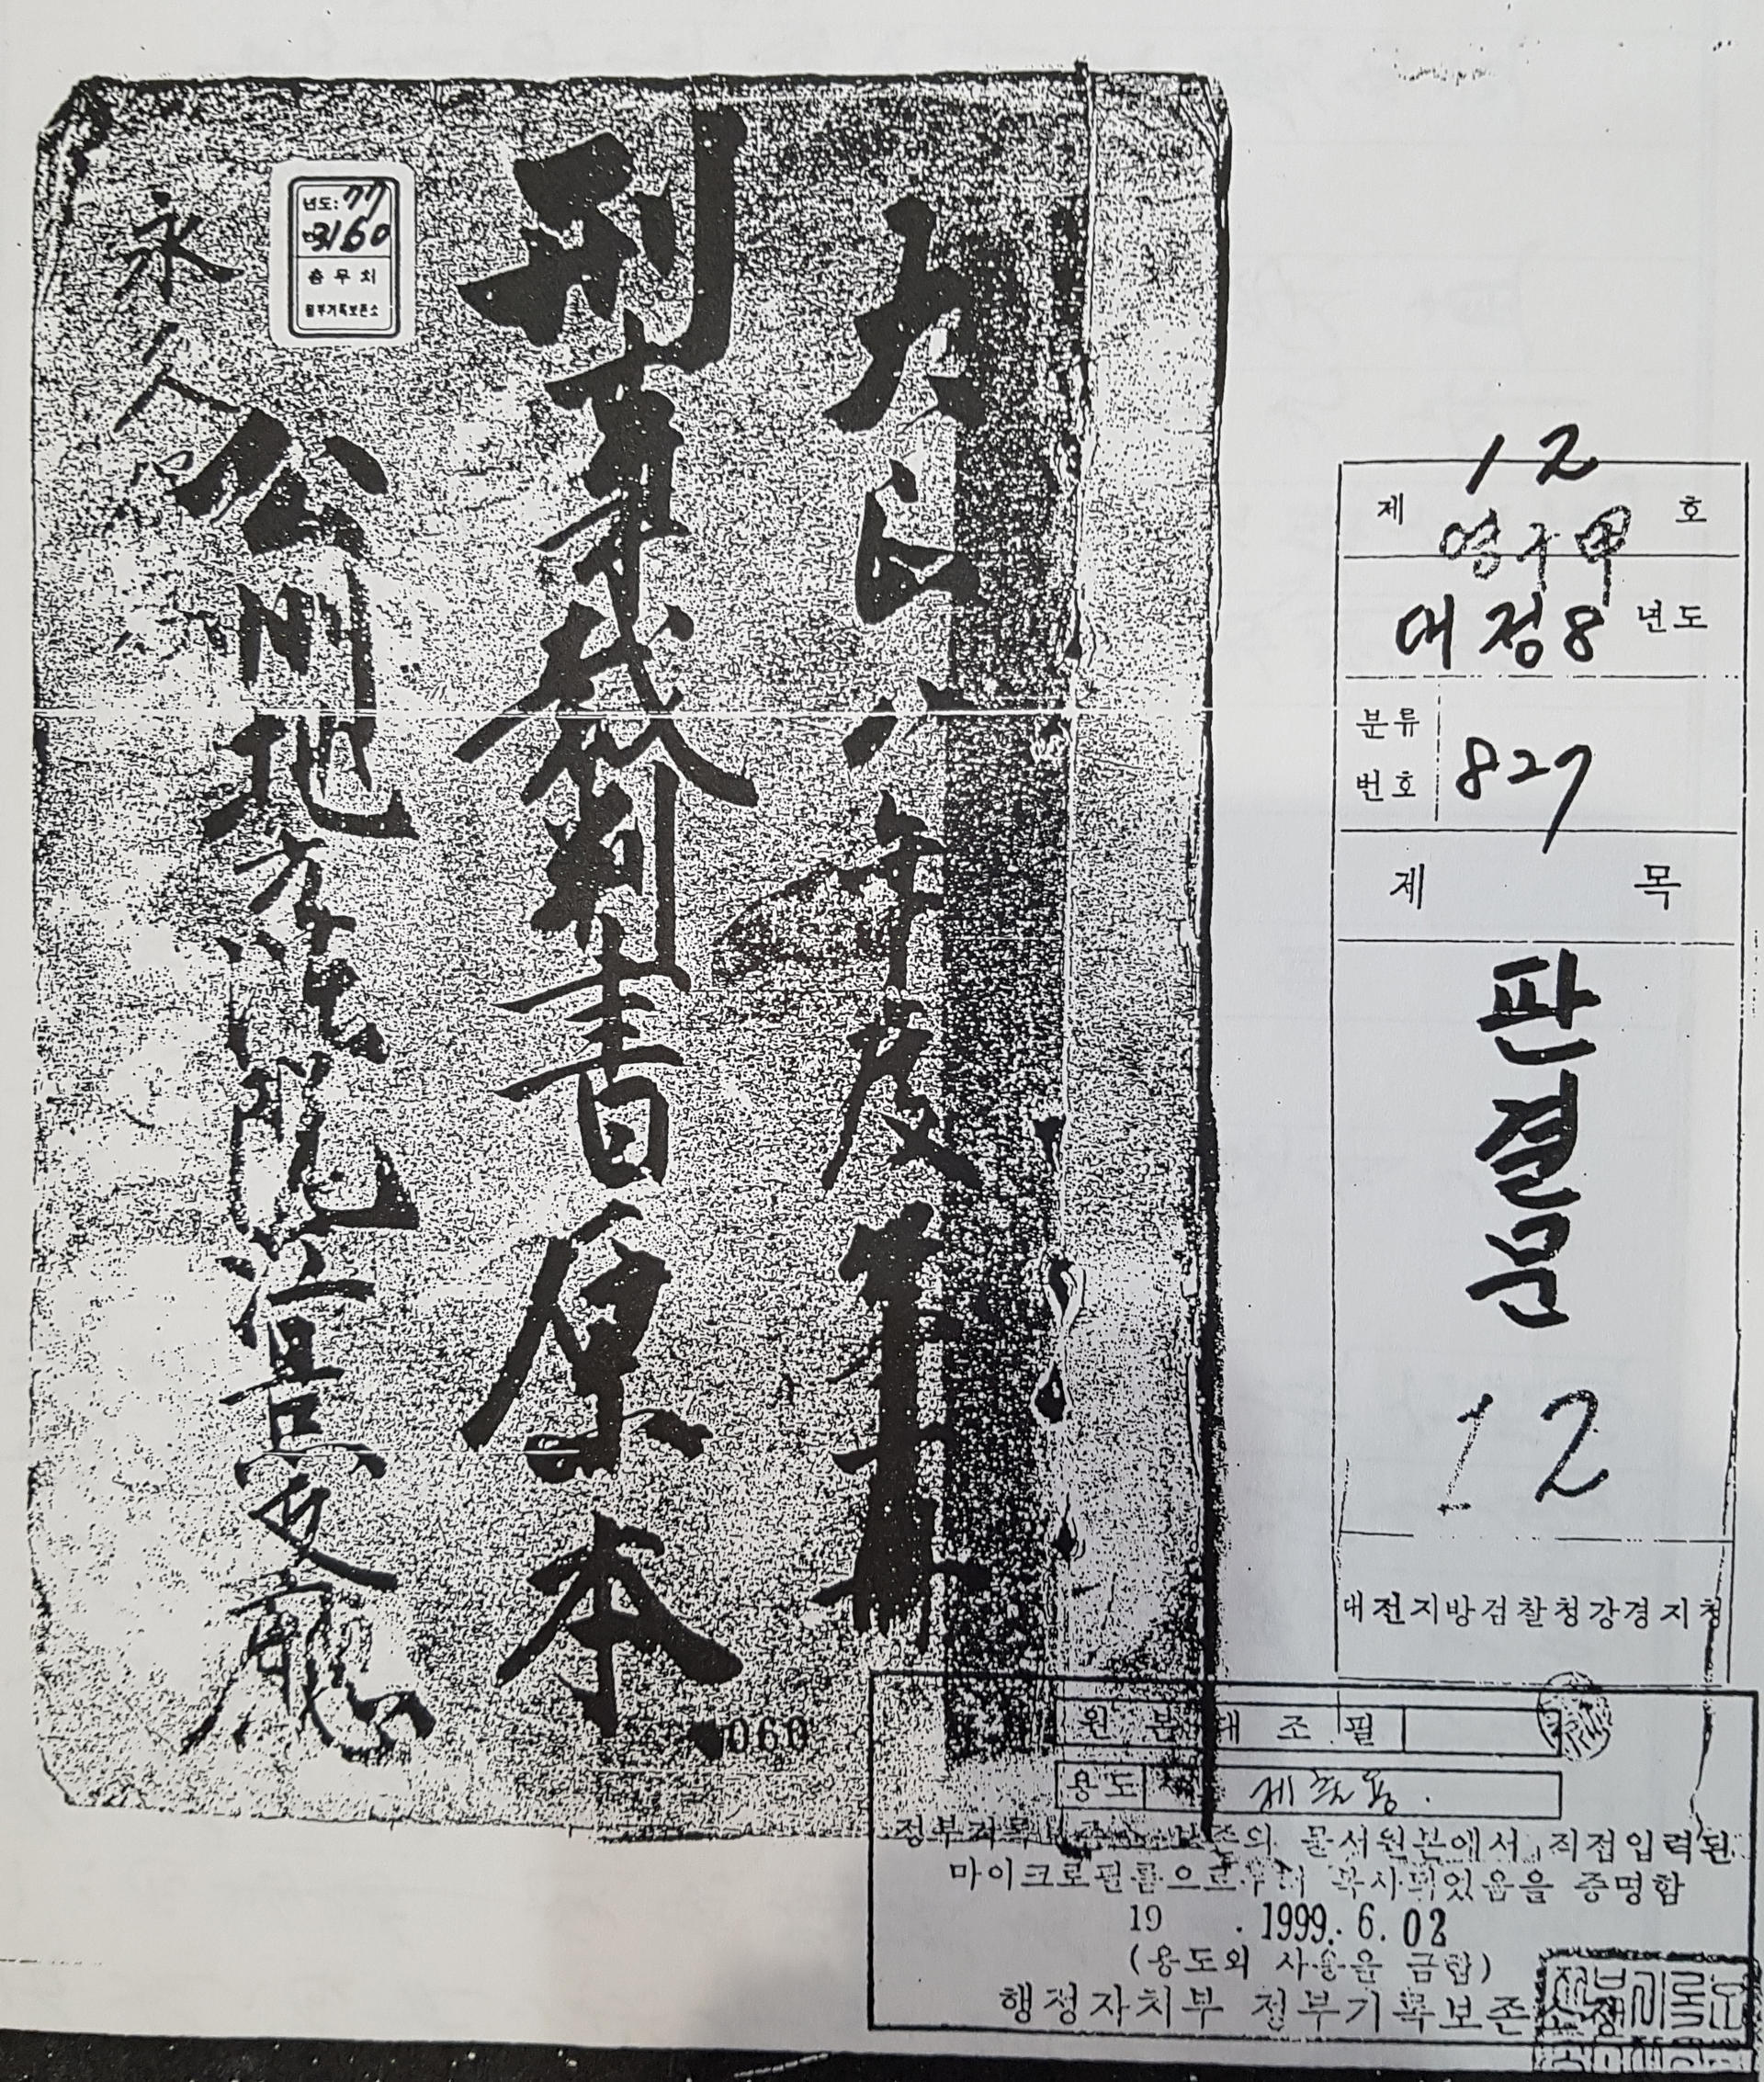 大正八年度第十冊
刑事裁判書原本
公州地方法院
永久保
년도: 77
3160
총무처
정부기록보존소
060
제 12 호
영구
대정8 년도
분류번호 827
제 목
판결문
12
대전지방검찰청강경지청
원본대조필
용도 제출용.
정부기록보존소 보존의 문서원본에서 직접입력된
마이크로필름으로부터 복사되었음을 증명함
19 . 1999. 6. 02
(용도외 사용을 금함)
행정자치부 정부기록보존소장